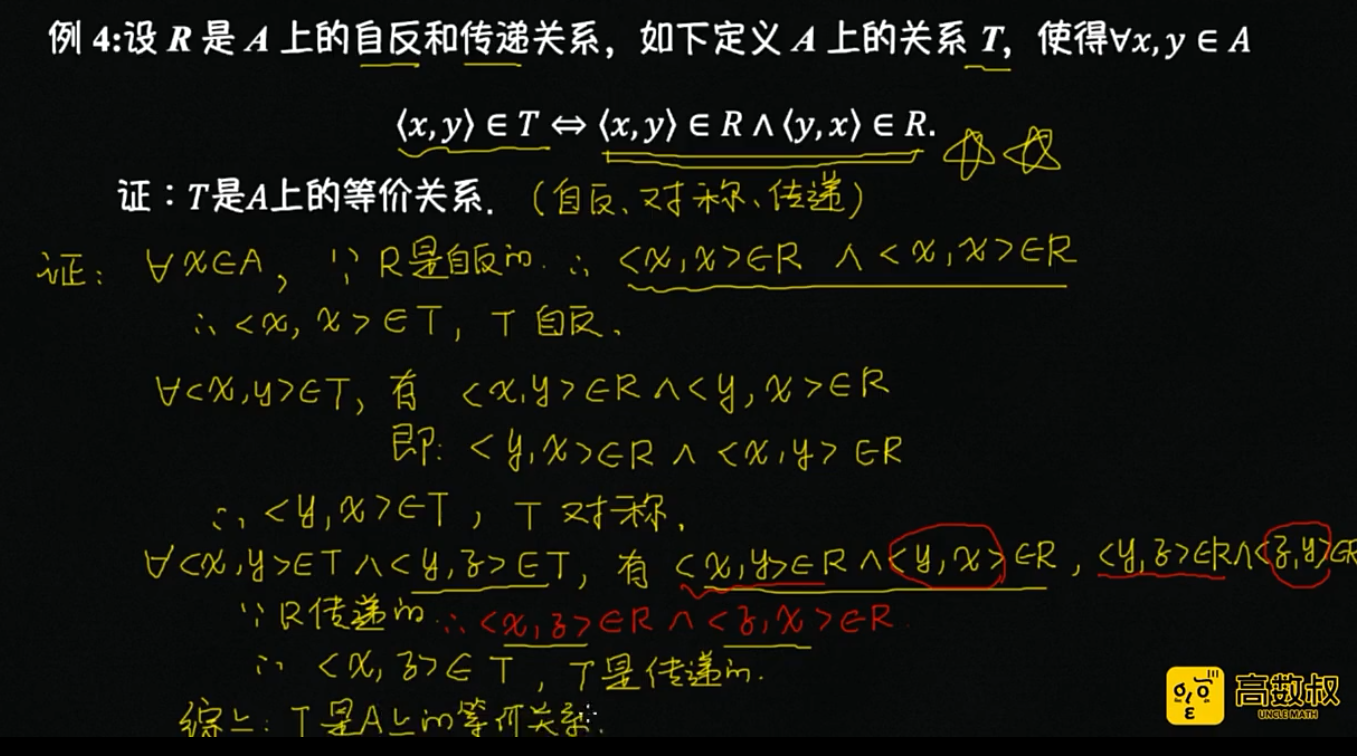 例 4:设 R 是 A 上的自反和传递关系，如下定义 A 上的关系 T，使得∀x, y ∈ A
⟨x, y⟩ ∈ T ⇔ ⟨x, y⟩ ∈ R ∧ ⟨y, x⟩ ∈ R.
证：T是A上的等价关系.（自反、对称、传递）
证: ∀x∈A, ∵ R是自反的. ∴ <x,x>∈R ∧ <x,x>∈R
∴ <x,x>∈T, T 自反.
∀<x,y>∈T, 有 <x,y>∈R∧<y,x>∈R
即: <y,x>∈R ∧ <x,y>∈R
∴ <y,x>∈T, T 对称.
∀<x,y>∈T∧<y,z>∈T, 有 <x,y>∈R∧<y,x>∈R, <y,z>∈R∧<z,y>∈R
∵ R传递的 ∴ <x,z>∈R∧<z,x>∈R.
∴ <x,z>∈T, T是传递的.
综上: T是A上的等价关系.
高数叔
UNCLE MATH